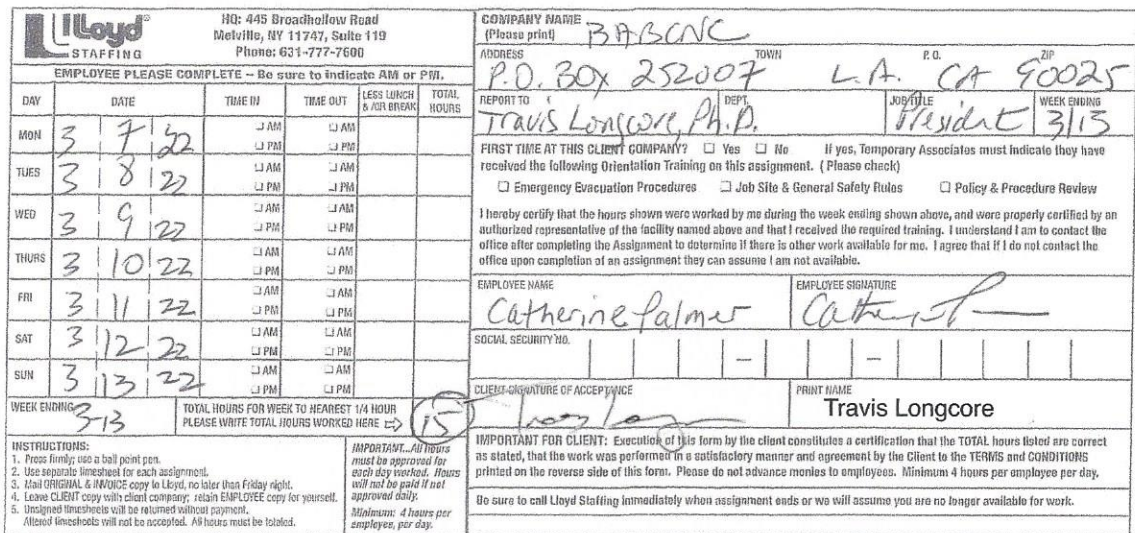 Lloyd®
STAFFING
HQ: 445 Broadhollow Road
Melville, NY 11747, Suite 119
Phone: 631-777-7600
EMPLOYEE PLEASE COMPLETE – Be sure to indicate AM or PM.
DAY DATE TIME IN TIME OUT LESS LUNCH & /OR BREAK TOTAL HOURS
MON 3 7 22 ☐ AM ☐ PM ☐ AM ☐ PM
TUES 3 8 22 ☐ AM ☐ PM ☐ AM ☐ PM
WED 3 9 22 ☐ AM ☐ PM ☐ AM ☐ PM
THURS 3 10 22 ☐ AM ☐ PM ☐ AM ☐ PM
FRI 3 11 22 ☐ AM ☐ PM ☐ AM ☐ PM
SAT 3 12 22 ☐ AM ☐ PM ☐ AM ☐ PM
SUN 3 13 22 ☐ AM ☐ PM ☐ AM ☐ PM
WEEK ENDING 3-13
TOTAL HOURS FOR WEEK TO NEAREST 1/4 HOUR
PLEASE WRITE TOTAL HOURS WORKED HERE ⇨ 15
INSTRUCTIONS:
1. Press firmly; use a ball point pen.
2. Use separate timesheet for each assignment.
3. Mail ORIGINAL & INVOICE copy to Lloyd, no later than Friday night.
4. Leave CLIENT copy with client company; retain EMPLOYEE copy for yourself.
5. Unsigned timesheets will be returned without payment.
Altered timesheets will not be accepted. All hours must be totaled.
IMPORTANT...All hours
must be approved for
each day worked. Hours
will not be paid if not
approved daily.
Minimum: 4 hours per
employee, per day.
COMPANY NAME
(Please print) BABCNC
ADDRESS TOWN P.O. ZIP
P.O. BOX 252007 L.A. CA 90025
REPORT TO DEPT. JOB TITLE WEEK ENDING
Travis Longcore, Ph.D. President 3/13
FIRST TIME AT THIS CLIENT COMPANY? ☐ Yes ☐ No If yes, Temporary Associates must indicate they have
received the following Orientation Training on this assignment. ( Please check)
☐ Emergency Evacuation Procedures ☐ Job Site & General Safety Rules ☐ Policy & Procedure Review
I hereby certify that the hours shown were worked by me during the week ending shown above, and were properly certified by an
authorized representative of the facility named above and that I received the required training. I understand I am to contact the
office after completing the Assignment to determine if there is other work available for me. I agree that if I do not contact the
office upon completion of an assignment they can assume I am not available.
EMPLOYEE NAME EMPLOYEE SIGNATURE
Catherine Palmer
SOCIAL SECURITY NO.
CLIENT SIGNATURE OF ACCEPTANCE PRINT NAME
Travis Longcore
IMPORTANT FOR CLIENT: Execution of this form by the client constitutes a certification that the TOTAL hours listed are correct
as stated, that the work was performed in a satisfactory manner and agreement by the Client to the TERMS and CONDITIONS
printed on the reverse side of this form. Please do not advance monies to employees. Minimum 4 hours per employee per day.
Be sure to call Lloyd Staffing immediately when assignment ends or we will assume you are no longer available for work.